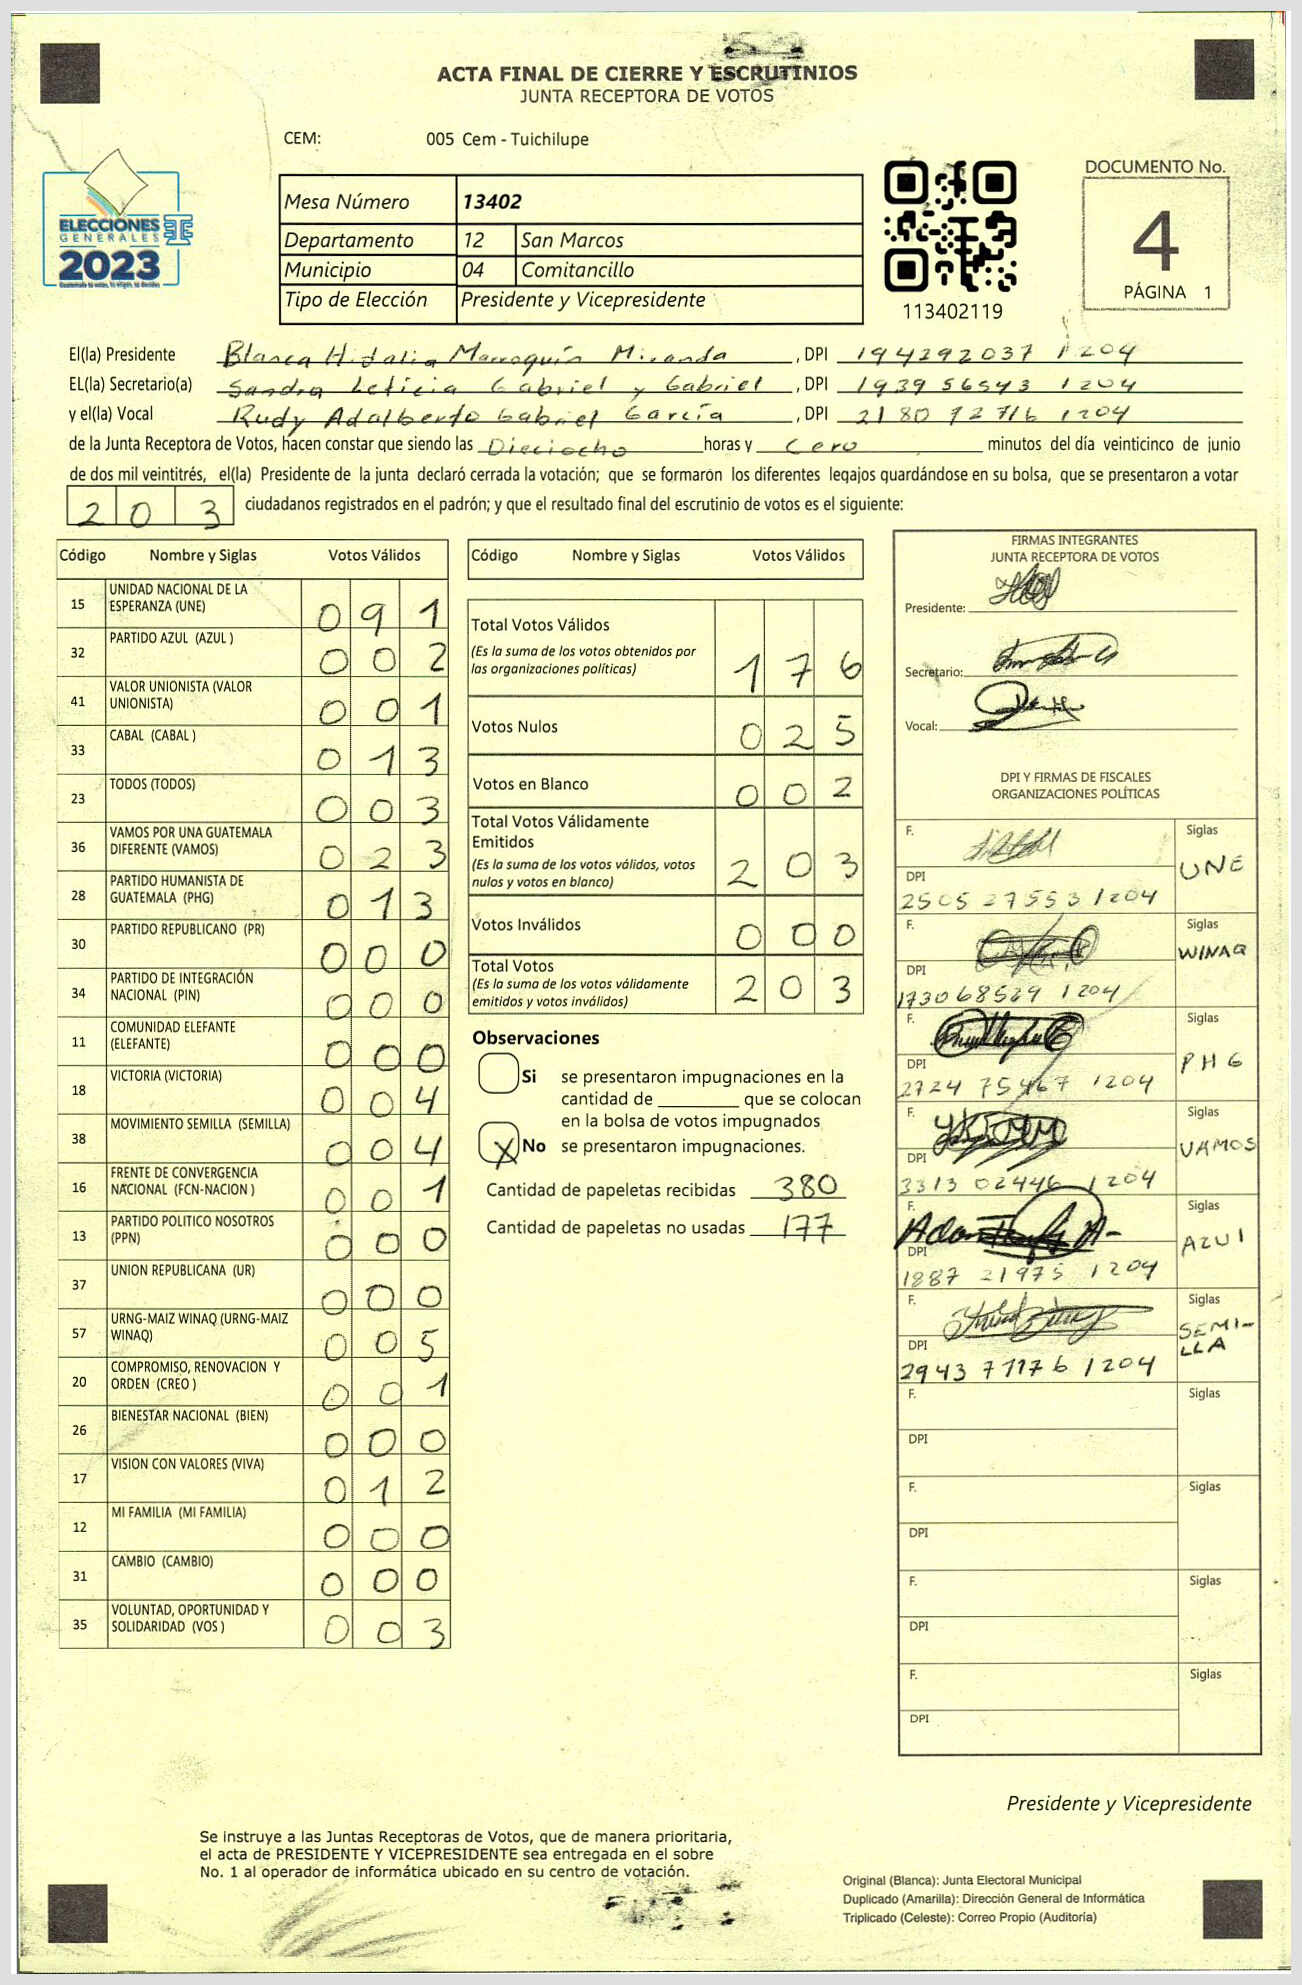 ACTA FINAL DE CIERRE Y ESCRUTINIOS
JUNTA RECEPTORA DE VOTOS
CEM: 005 Cem - Tuichilupe
ELECCIONES
GENERALES
2023
Mesa Número 13402
Departamento 12 San Marcos
Municipio 04 Comitancillo
Tipo de Elección Presidente y Vicepresidente
113402119
DOCUMENTO No.
4
PÁGINA 1
El(la) Presidente Blanca Hidalia Marroquín Miranda , DPI 194292037 1204
EL(la) Secretario(a) Sandra Leticia Gabriel y Gabriel , DPI 193956543 1204
y el(la) Vocal Rudy Adalberto Gabriel García , DPI 2180 72716 1204
de la Junta Receptora de Votos, hacen constar que siendo las Dieciocho horas y Cero minutos del día veinticinco de junio
de dos mil veintitrés, el(la) Presidente de la junta declaró cerrada la votación; que se formaron los diferentes legajos quardándose en su bolsa, que se presentaron a votar
203 ciudadanos registrados en el padrón; y que el resultado final del escrutinio de votos es el siguiente:
Código Nombre y Siglas Votos Válidos
15 UNIDAD NACIONAL DE LA ESPERANZA (UNE) 091
32 PARTIDO AZUL (AZUL ) 002
41 VALOR UNIONISTA (VALOR UNIONISTA) 001
33 CABAL (CABAL ) 013
23 TODOS (TODOS) 003
36 VAMOS POR UNA GUATEMALA DIFERENTE (VAMOS) 023
28 PARTIDO HUMANISTA DE GUATEMALA (PHG) 013
30 PARTIDO REPUBLICANO (PR) 000
34 PARTIDO DE INTEGRACIÓN NACIONAL (PIN) 000
11 COMUNIDAD ELEFANTE (ELEFANTE) 000
18 VICTORIA (VICTORIA) 004
38 MOVIMIENTO SEMILLA (SEMILLA) 004
16 FRENTE DE CONVERGENCIA NACIONAL (FCN-NACION ) 001
13 PARTIDO POLITICO NOSOTROS (PPN) 000
37 UNION REPUBLICANA (UR) 000
57 URNG-MAIZ WINAQ (URNG-MAIZ WINAQ) 005
20 COMPROMISO, RENOVACION Y ORDEN (CREO ) 001
26 BIENESTAR NACIONAL (BIEN) 000
17 VISION CON VALORES (VIVA) 012
12 MI FAMILIA (MI FAMILIA) 000
31 CAMBIO (CAMBIO) 000
35 VOLUNTAD, OPORTUNIDAD Y SOLIDARIDAD (VOS ) 003
Código Nombre y Siglas Votos Válidos
Total Votos Válidos
(Es la suma de los votos obtenidos por
las organizaciones políticas) 176
Votos Nulos 025
Votos en Blanco 002
Total Votos Válidamente
Emitidos
(Es la suma de los votos válidos, votos
nulos y votos en blanco) 203
Votos Inválidos 000
Total Votos
(Es la suma de los votos válidamente
emitidos y votos inválidos) 203
Observaciones
Si se presentaron impugnaciones en la
cantidad de ________ que se colocan
en la bolsa de votos impugnados
X No se presentaron impugnaciones.
Cantidad de papeletas recibidas 380
Cantidad de papeletas no usadas 177
FIRMAS INTEGRANTES
JUNTA RECEPTORA DE VOTOS
Presidente:
Secretario:
Vocal:
DPI Y FIRMAS DE FISCALES
ORGANIZACIONES POLÍTICAS
F. Siglas
UNE
DPI
2505 27553 1204
F. Siglas
WINAQ
DPI
1730 68529 1204
F. Siglas
PHG
DPI
2724 75467 1204
F. Siglas
VAMOS
DPI
3313 02446 1204
F. Siglas
AZUl
DPI
1887 21975 1204
F. Siglas
SEMI-
LLA
DPI
2943 77176 1204
F. Siglas
DPI
F. Siglas
DPI
F. Siglas
DPI
F. Siglas
DPI
Presidente y Vicepresidente
Se instruye a las Juntas Receptoras de Votos, que de manera prioritaria,
el acta de PRESIDENTE Y VICEPRESIDENTE sea entregada en el sobre
No. 1 al operador de informática ubicado en su centro de votación.
Original (Blanca): Junta Electoral Municipal
Duplicado (Amarilla): Dirección General de Informática
Triplicado (Celeste): Correo Propio (Auditoría)